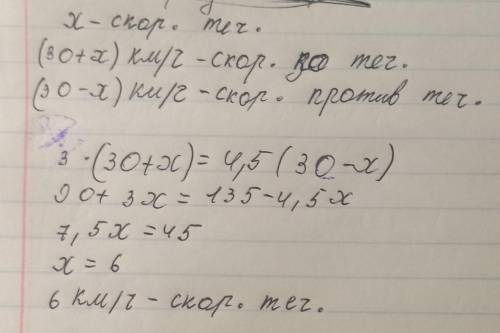 х - скор. теч.
(30+х) км/ч - скор. по теч.
(30-х) км/ч - скор. против теч.
3·(30+х) = 4,5(30-х)
90+3х = 135-4,5х
7,5х = 45
х = 6
6 км/ч - скор. теч.